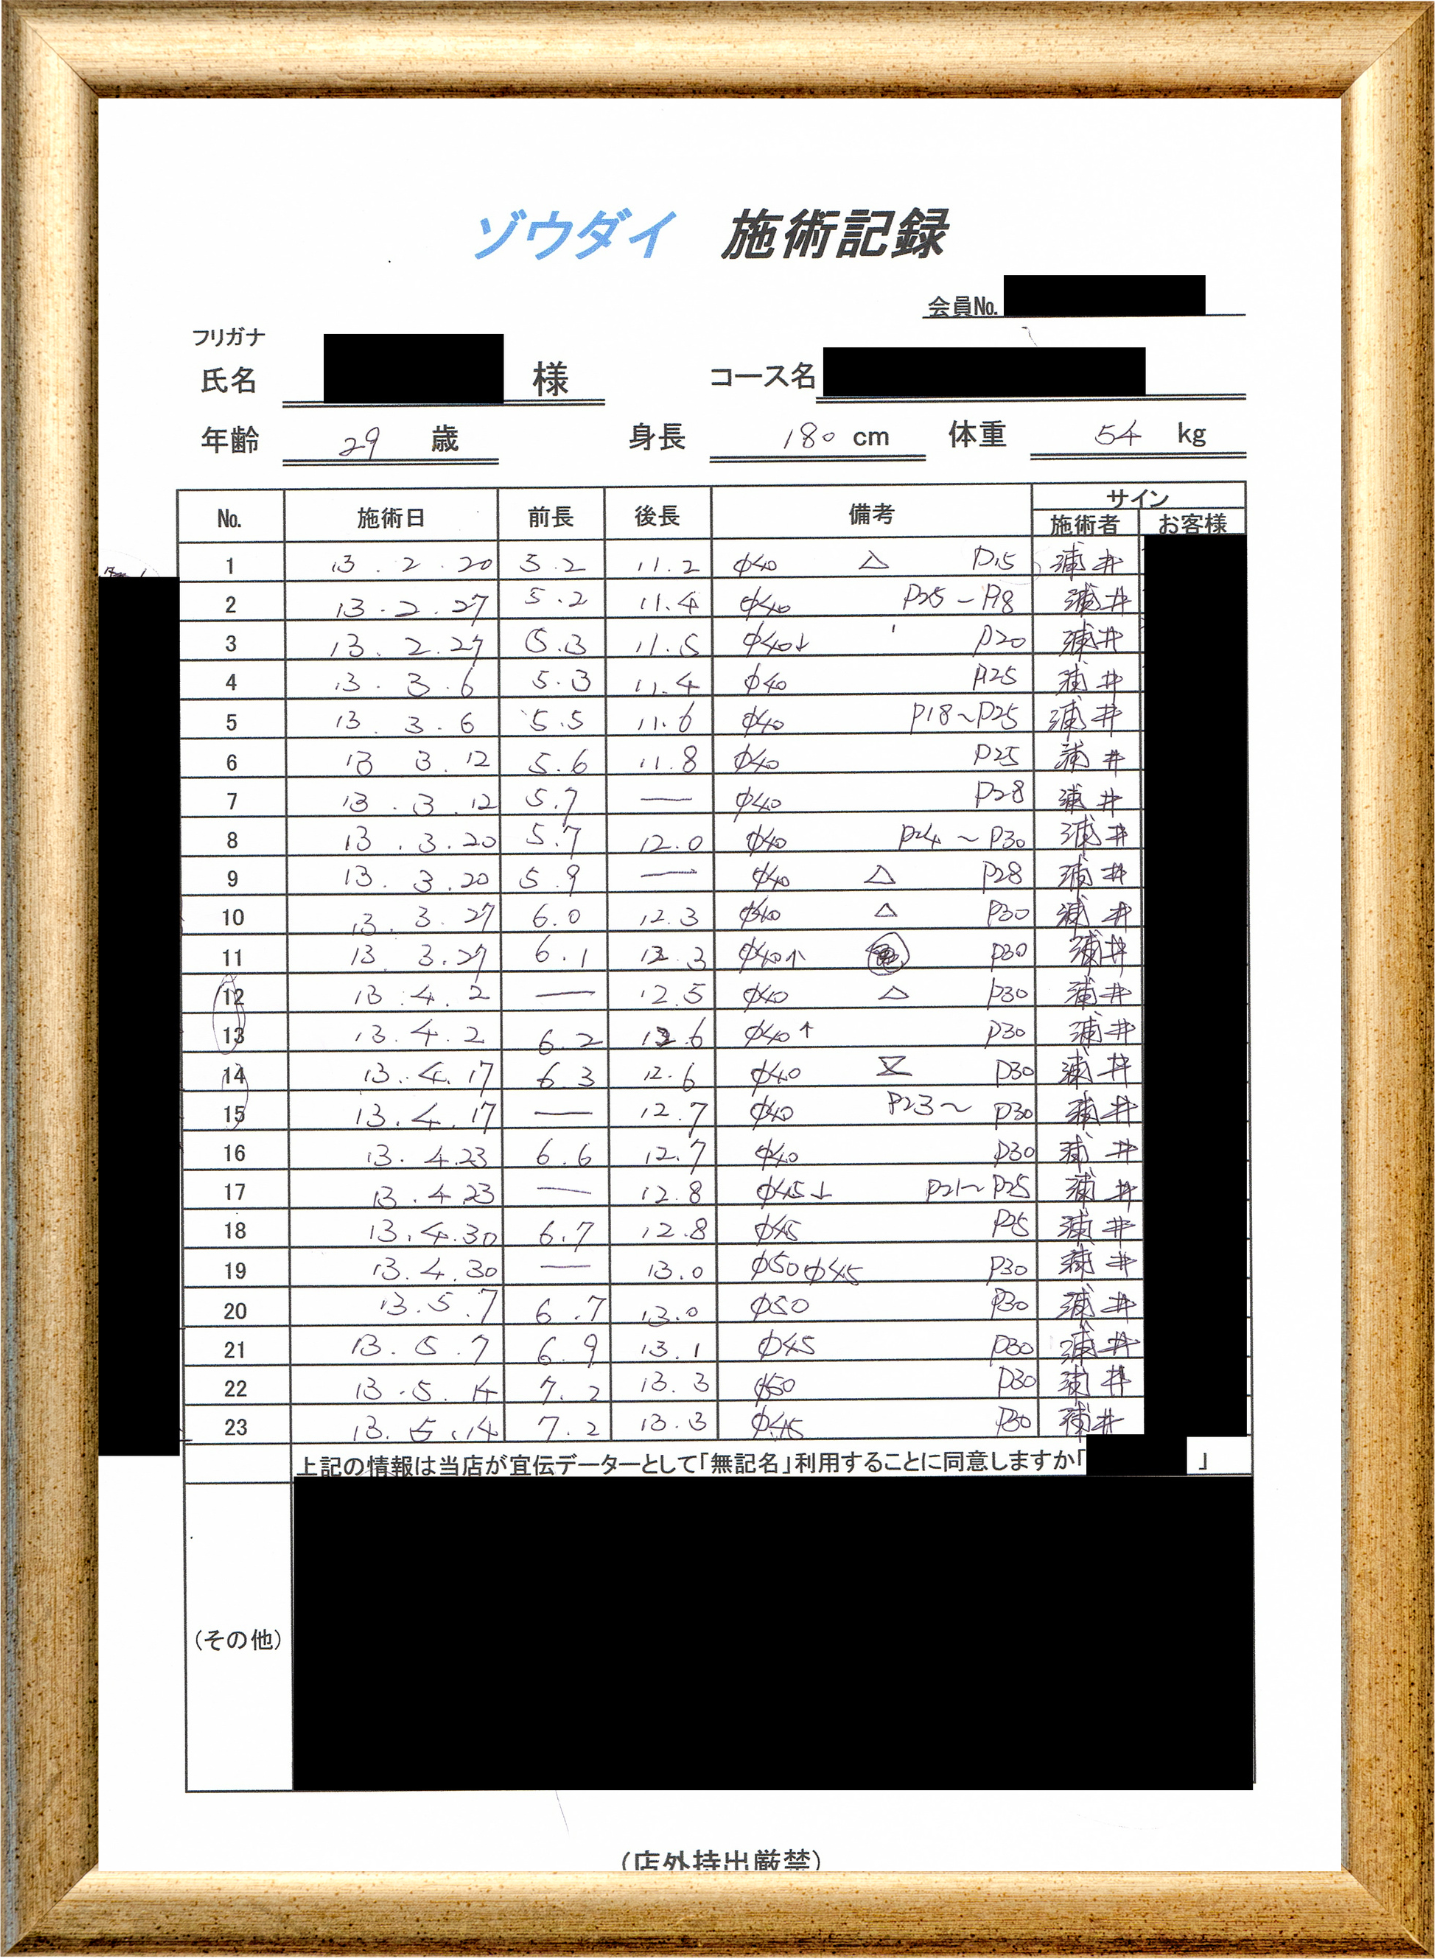 ゾウダイ 施術記録
会員No.
フリガナ
氏名 様 コース名
年齢 29 歳 身長 180 cm 体重 54 kg
No. 施術日 前長 後長 備考 サイン
施術者 お客様
1 13. 2. 20 5.2 11.2 φ40 △ P15 浦井
2 13. 2. 27 5.2 11.4 φ40 P25 - P18 浦井
3 13. 2. 27 5.3 11.5 φ40↓ P20 浦井
4 13. 3. 6 5.3 11.4 φ40 P25 浦井
5 13. 3. 6 5.5 11.6 φ40 P18~P25 浦井
6 13 3. 12 5.6 11.8 φ40 P25 浦井
7 13. 3. 12 5.7 — φ40 P28 浦井
8 13. 3. 20 5.7 12.0 φ40 P24 ~ P30 浦井
9 13. 3. 20 5.9 — φ40 △ P28 浦井
10 13. 3. 27 6.0 12.3 φ40 △ P30 浦井
11 13. 3. 27 6.1 12.3 φ40↑ P30 浦井
12 13. 4. 2 — 12.5 φ40 △ P30 浦井
13 13. 4. 2 6.2 12.6 φ40↑ P30 浦井
14 13. 4. 17 6.3 12.6 φ40 P30 浦井
15 13. 4. 17 — 12.7 φ40 P23~ P30 浦井
16 13. 4. 23 6.6 12.7 φ40 P30 浦井
17 13. 4. 23 — 12.8 φ45↓ P21~P25 浦井
18 13. 4. 30 6.7 12.8 φ45 P25 浦井
19 13. 4. 30 — 13.0 φ50 φ45 P30 浦井
20 13. 5. 7 6.7 13.0 φ50 P30 浦井
21 13. 5. 7 6.9 13.1 φ45 P30 浦井
22 13. 5. 14 7.2 13.3 φ50 P30 浦井
23 13. 5. 14 7.2 13.3 φ45 P30 浦井
上記の情報は当店が宣伝データーとして「無記名」利用することに同意しますか「 」
(その他)
(店外持出厳禁)